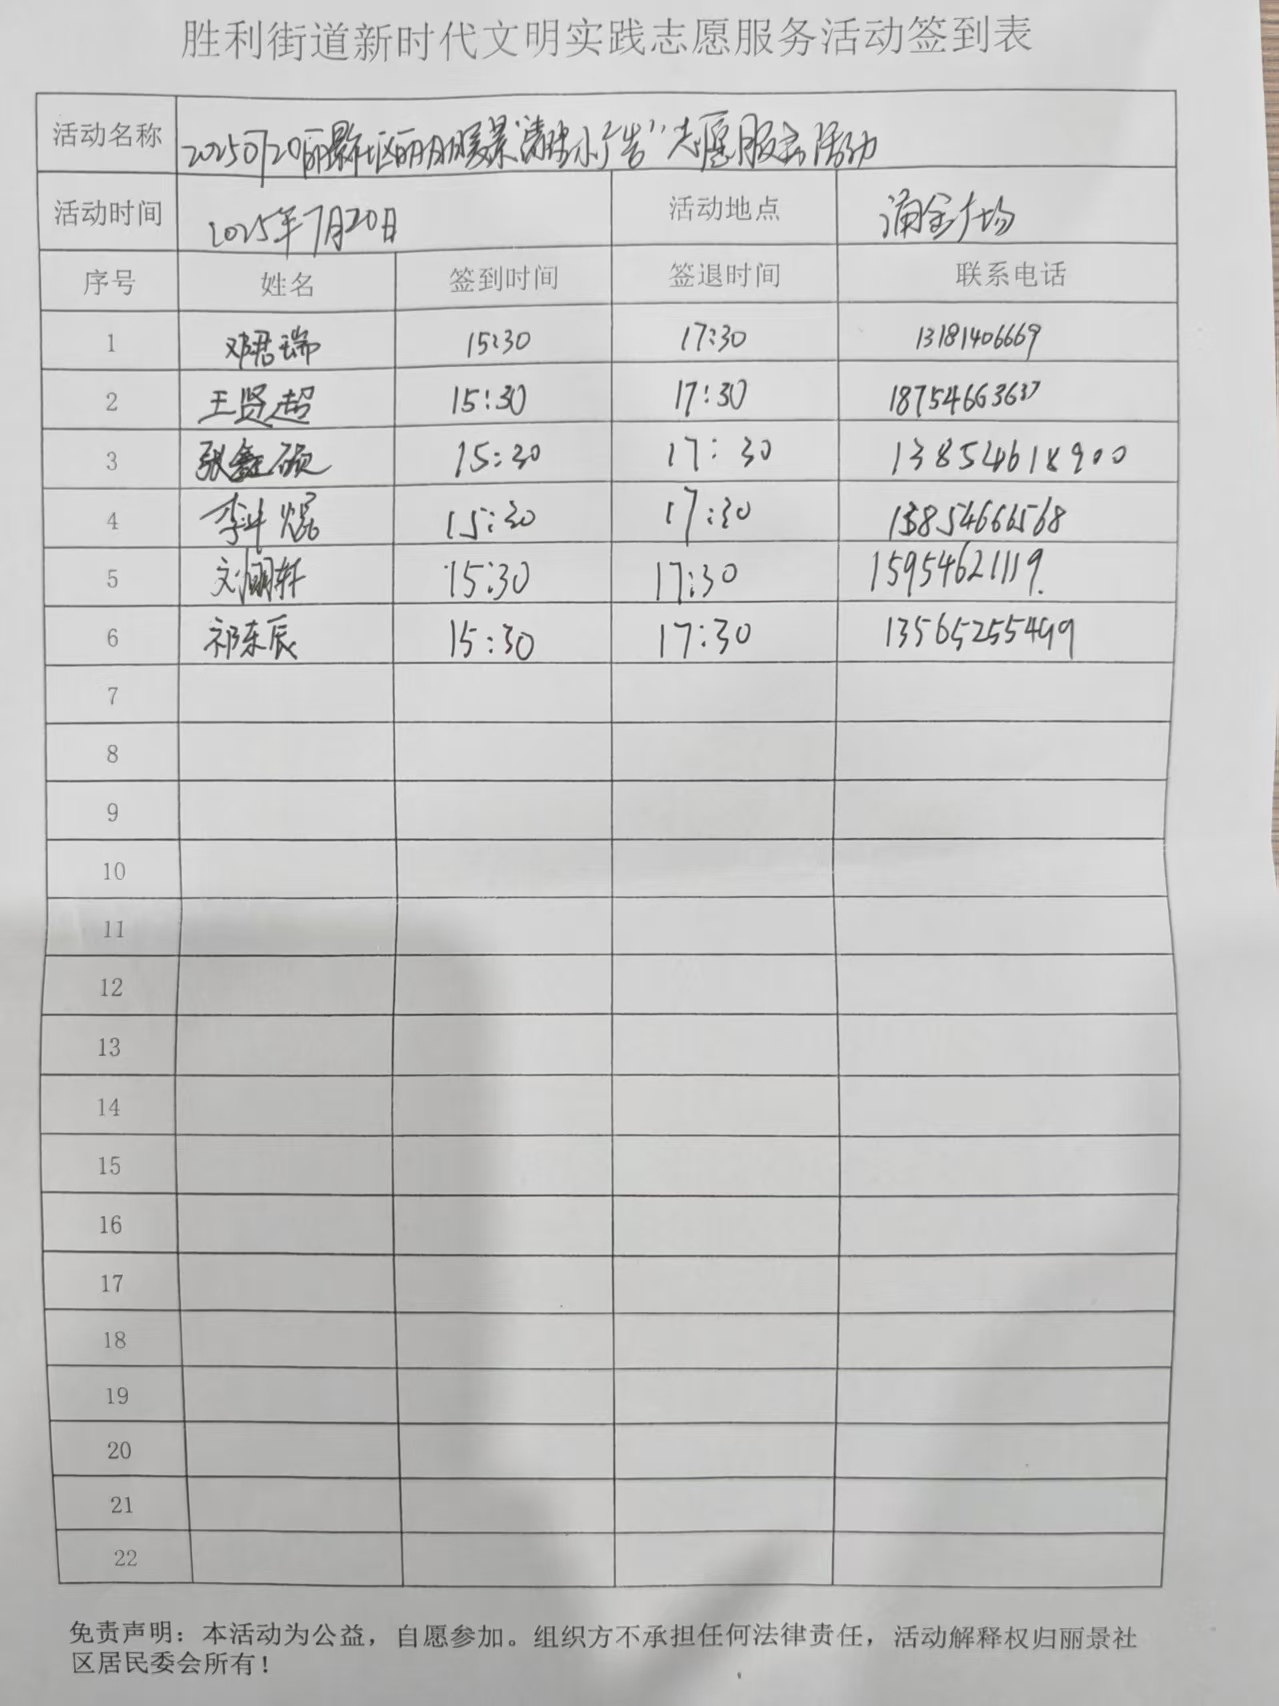 胜利街道新时代文明实践志愿服务活动签到表
活动名称 20250720丽景社区丽日暖景"清除小广告"志愿服务活动
活动时间 2025年7月20日 活动地点 涌金广场
序号 姓名 签到时间 签退时间 联系电话
1 邓君瑞 15:30 17:30 13181406669
2 王贤超 15:30 17:30 18754663637
3 张鑫硕 15:30 17:30 13854618900
4 李斗焜 15:30 17:30 13854666568
5 刘润轩 15:30 17:30 15954621119.
6 祁东辰 15:30 17:30 13565255499
7
8
9
10
11
12
13
14
15
16
17
18
19
20
21
22
免责声明：本活动为公益，自愿参加。组织方不承担任何法律责任，活动解释权归丽景社
区居民委会所有！